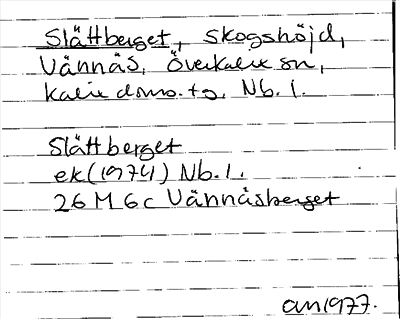 Slättberget, skogshöjd,
Vännäs, Överkalix sn,
Kalix dms. tg. Nb. l.
Slättberget
ek (1974) Nb. l.
26 M 6c Vännäsberget
an 1977.